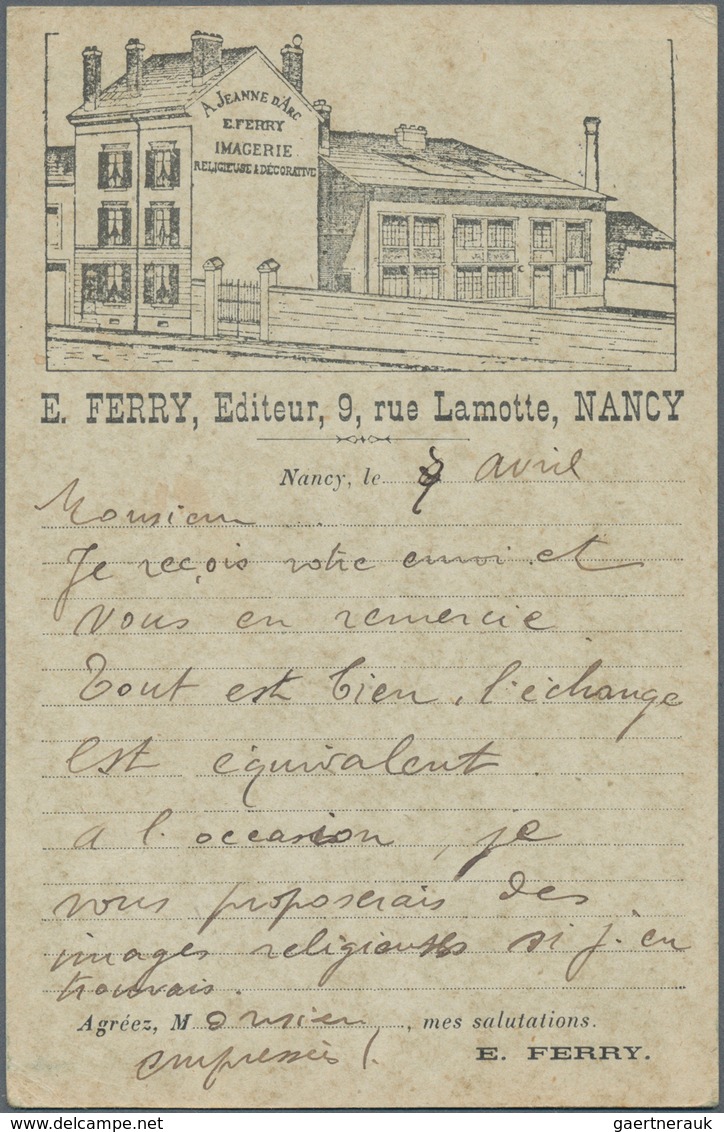 A JEANNE D'ARC
E. FERRY
IMAGERIE
RELIGIEUSE & DÉCORATIVE
E. FERRY, Editeur, 9, rue Lamotte, NANCY
Nancy, le avril
Monsieur
Je reçois votre envoi et
vous en remercie
Tout est bien, l'échange
est équivalent.
a l'occasion, je
vous proposerais des
images religieuses si j'en
trouvais.
Agréez, Monsieur, mes salutations.
empressées
E. FERRY.
gaertnerauk